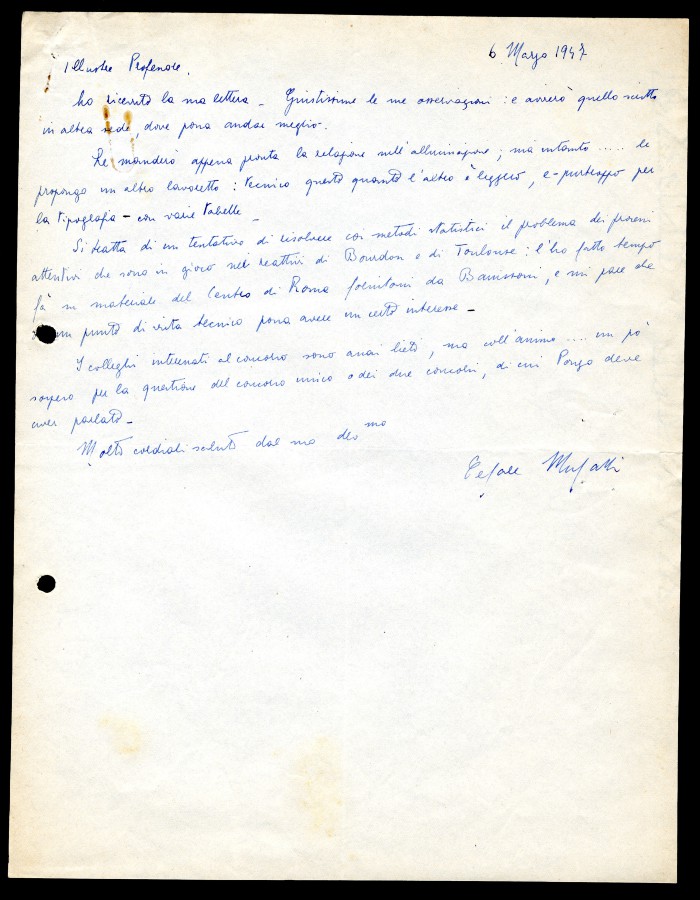 6 Marzo 1947
Illustre Professore.
ho ricevuto la sua lettera - Giustissime le sue osservazioni: e avverrò quello scritto
in altra sede, dove possa andar meglio.
Le manderò appena pronta la relazione sull'allucinazione; ma intanto ..... le
propongo un altro lavoretto: tecnico questo quanto l'altro è leggero, e - purtroppo per
la tipografia - con varie tabelle -
Si tratta di un tentativo di risolvere coi metodi statistici il problema dei processi
attentivi che sono in gioco nei reattivi di Bourdon e di Toulouse: l'ho fatto tempo
fà su materiale del Centro di Roma fornitomi da Banissoni, e mi pare che
un punto di vista tecnico possa avere un certo interesse -
I colleghi interessati al concorso sono assai lieti, ma coll'animo ... un po'
sospeso per la questione del concorso unico o dei due concorsi, di cui Ponzo deve
aver parlato -
Molti cordiali saluti dal suo dev mo
Cesare Musatti